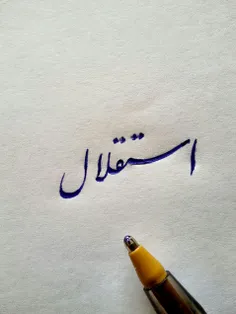 استقلال